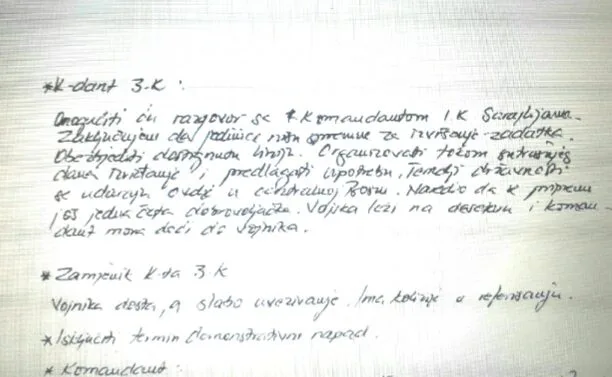 *K-dant 3.K :
Omogućiti ću razgovor sa Komandantom 1.K Sarajlijama.
Zaključujem da jedinice nisu spremne za izvršenje zadatka.
Obezbjediti dostignutu liniju. Organizovati tokom sutrašnjeg
dana izviđanje i predlagati upotrebu, temelji državnosti
se udaraju ovdje u centralnoj Bosni. Naredio da se pripremi
još jedna četa dobrovoljačka. Vojska leži na desetaru i koman-
dant mora doći do vojnika.
* Zamjenik K-ta 3.K
Vojnika dosta, a slabo uvezivanje. Ima kolizije u referisanju.
* Isključiti termin demonstrativni napad.
* Komandant: